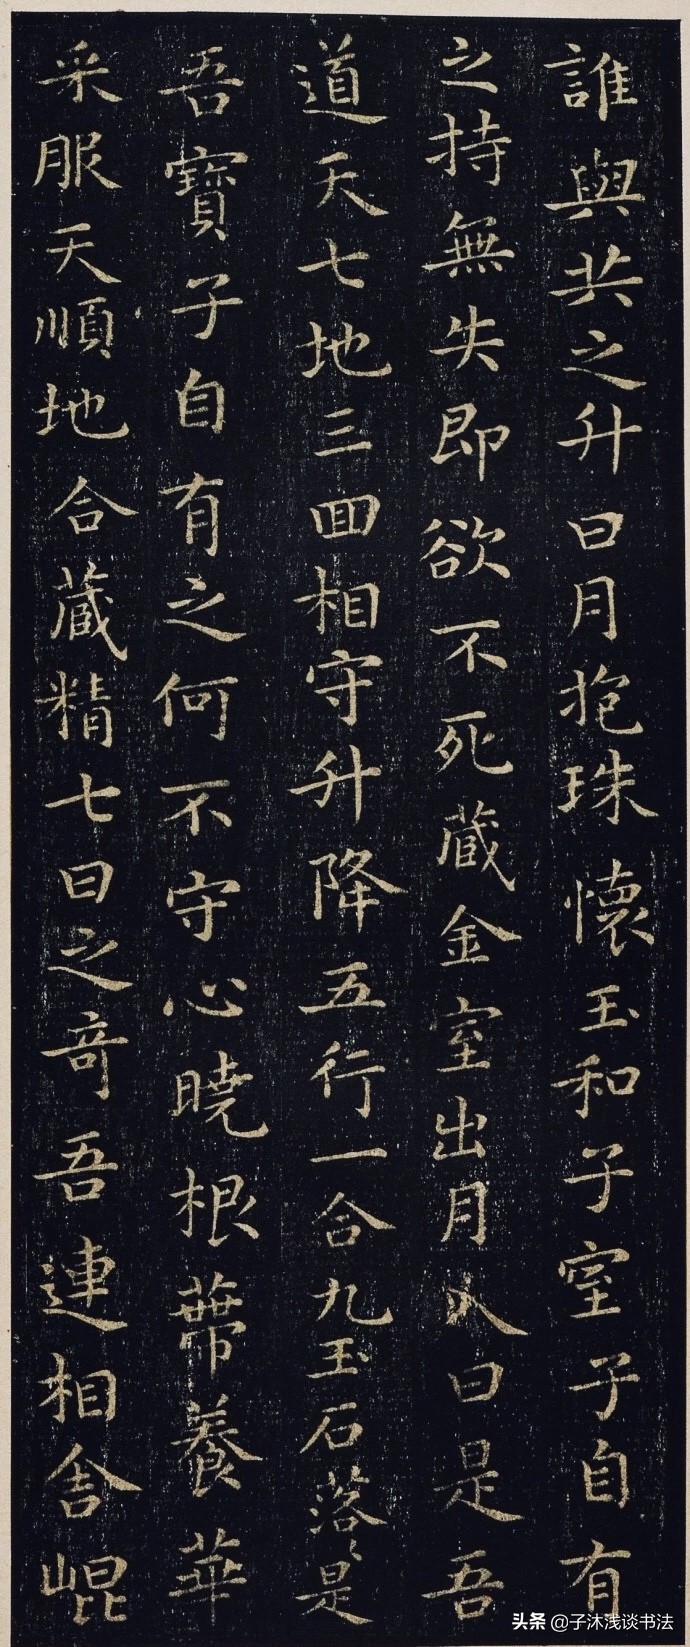 誰與共之升日月抱珠懷玉和子室子自有
之持無失即欲不死藏金室出月入日是吾
道天七地三回相守升降五行一合九玉石落〻是
吾寶子自有之何不守心曉根蔕養華
采服天順地合藏精七日之奇吾連相舍崐
头条 @子沐浅谈书法